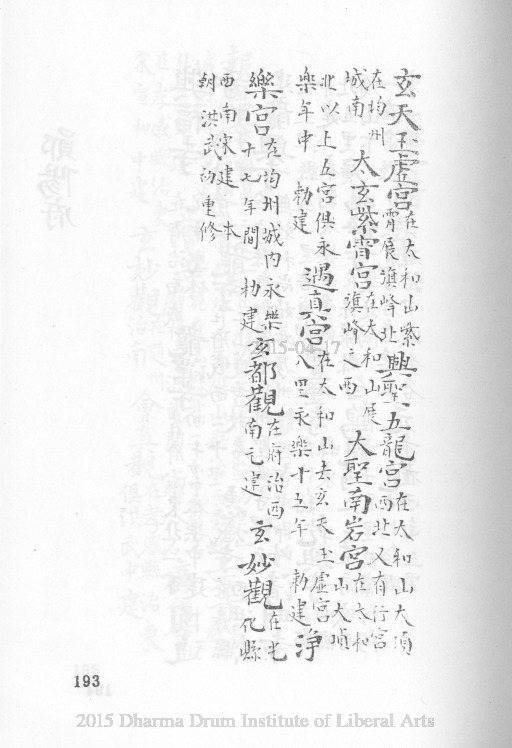 玄天玉虛宮在太和山紫霄展旗峰北興聖五龍宮在太和山大頂西北又有行宮
在均州城南太玄紫霄宮在太和山展旗峰之西大聖南岩宮在太和山大頂
北以上五宮俱永樂年中勅建遇真宮在太和山去玄天玉虛宮八里永樂十五年勅建淨
樂宮在均州城內永樂十七年間勅建玄都觀在府治西南元建玄妙觀在光化縣
西南宋建本朝洪武初重修
15-04-17
193
2015 Dharma Drum Institute of Liberal Arts